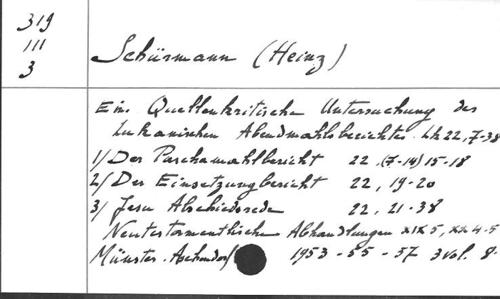 319
III
3
Schürmann (Heinz)
Eine Quellenkritische Untersuchung des
Lukanischen Abendmahlsberichtes. Lk 22, 7-38
1/ Der Paschamahlbericht 22, (7-14) 15-18
2/ Der Einsetzungsbericht 22, 19-20
3/ Jesu Abschiedsrede 22, 21-38
Neutestamentliche Abhandlungen XIX 5, XX 4-5
Münster. Aschendorf 1953-55-57 3 vol. 8°